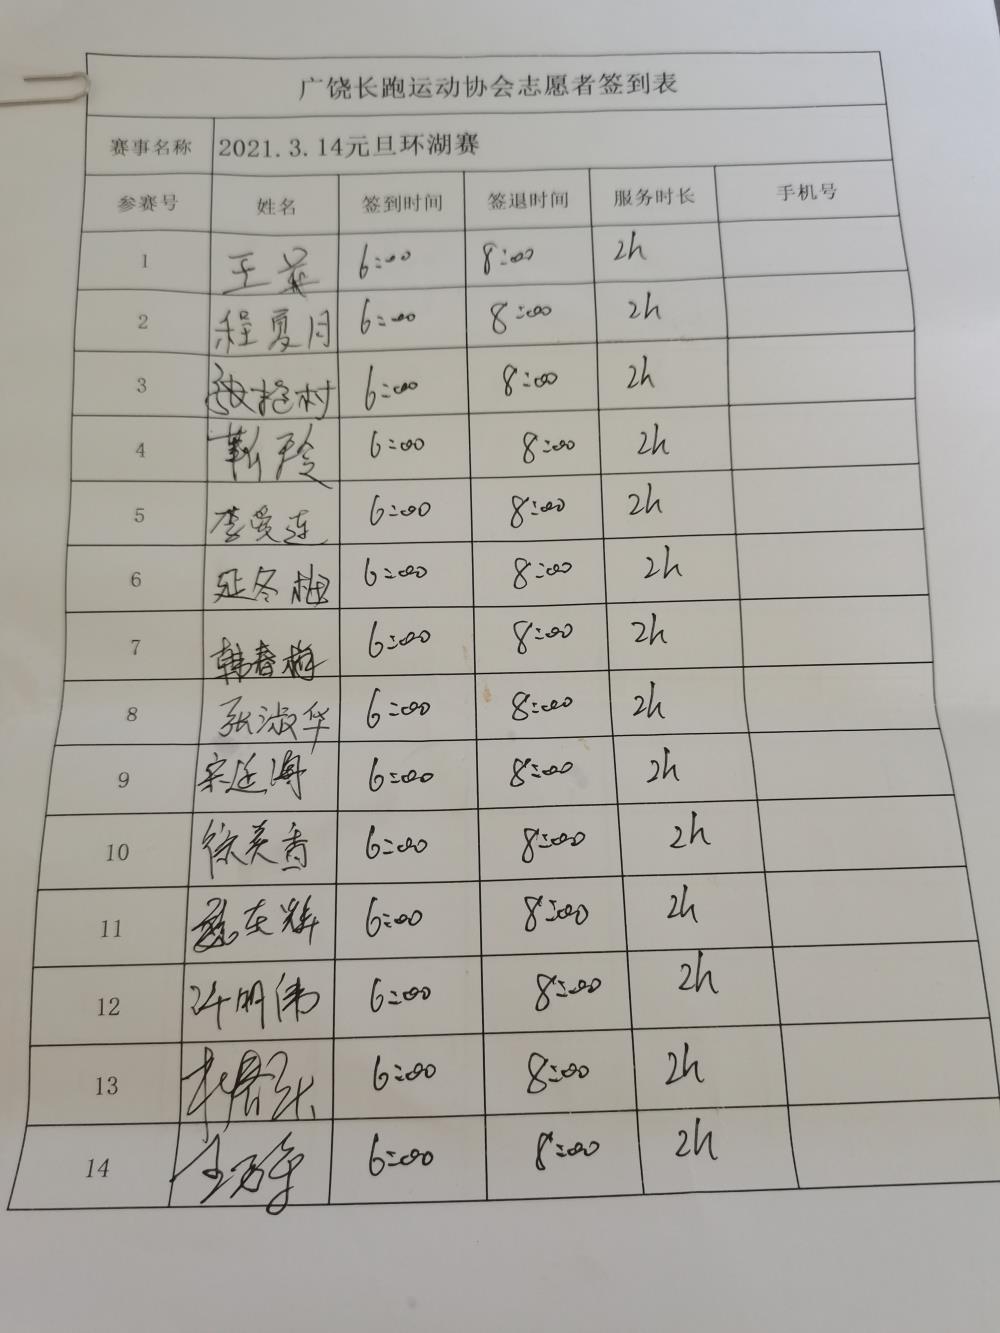 广饶长跑运动协会志愿者签到表
赛事名称 2021.3.14元旦环湖赛
参赛号 姓名 签到时间 签退时间 服务时长 手机号
1 王英 6:00 8:00 2h
2 程夏月 6:00 8:00 2h
3 6:00 8:00 2h
4 靳玲 6:00 8:00 2h
5 李爱连 6:00 8:00 2h
6 延冬梅 6:00 8:00 2h
7 韩春梅 6:00 8:00 2h
8 张淑华 6:00 8:00 2h
9 宋廷海 6:00 8:00 2h
10 徐美香 6:00 8:00 2h
11 6:00 8:00 2h
12 许明伟 6:00 8:00 2h
13 6:00 8:00 2h
14 6:00 8:00 2h